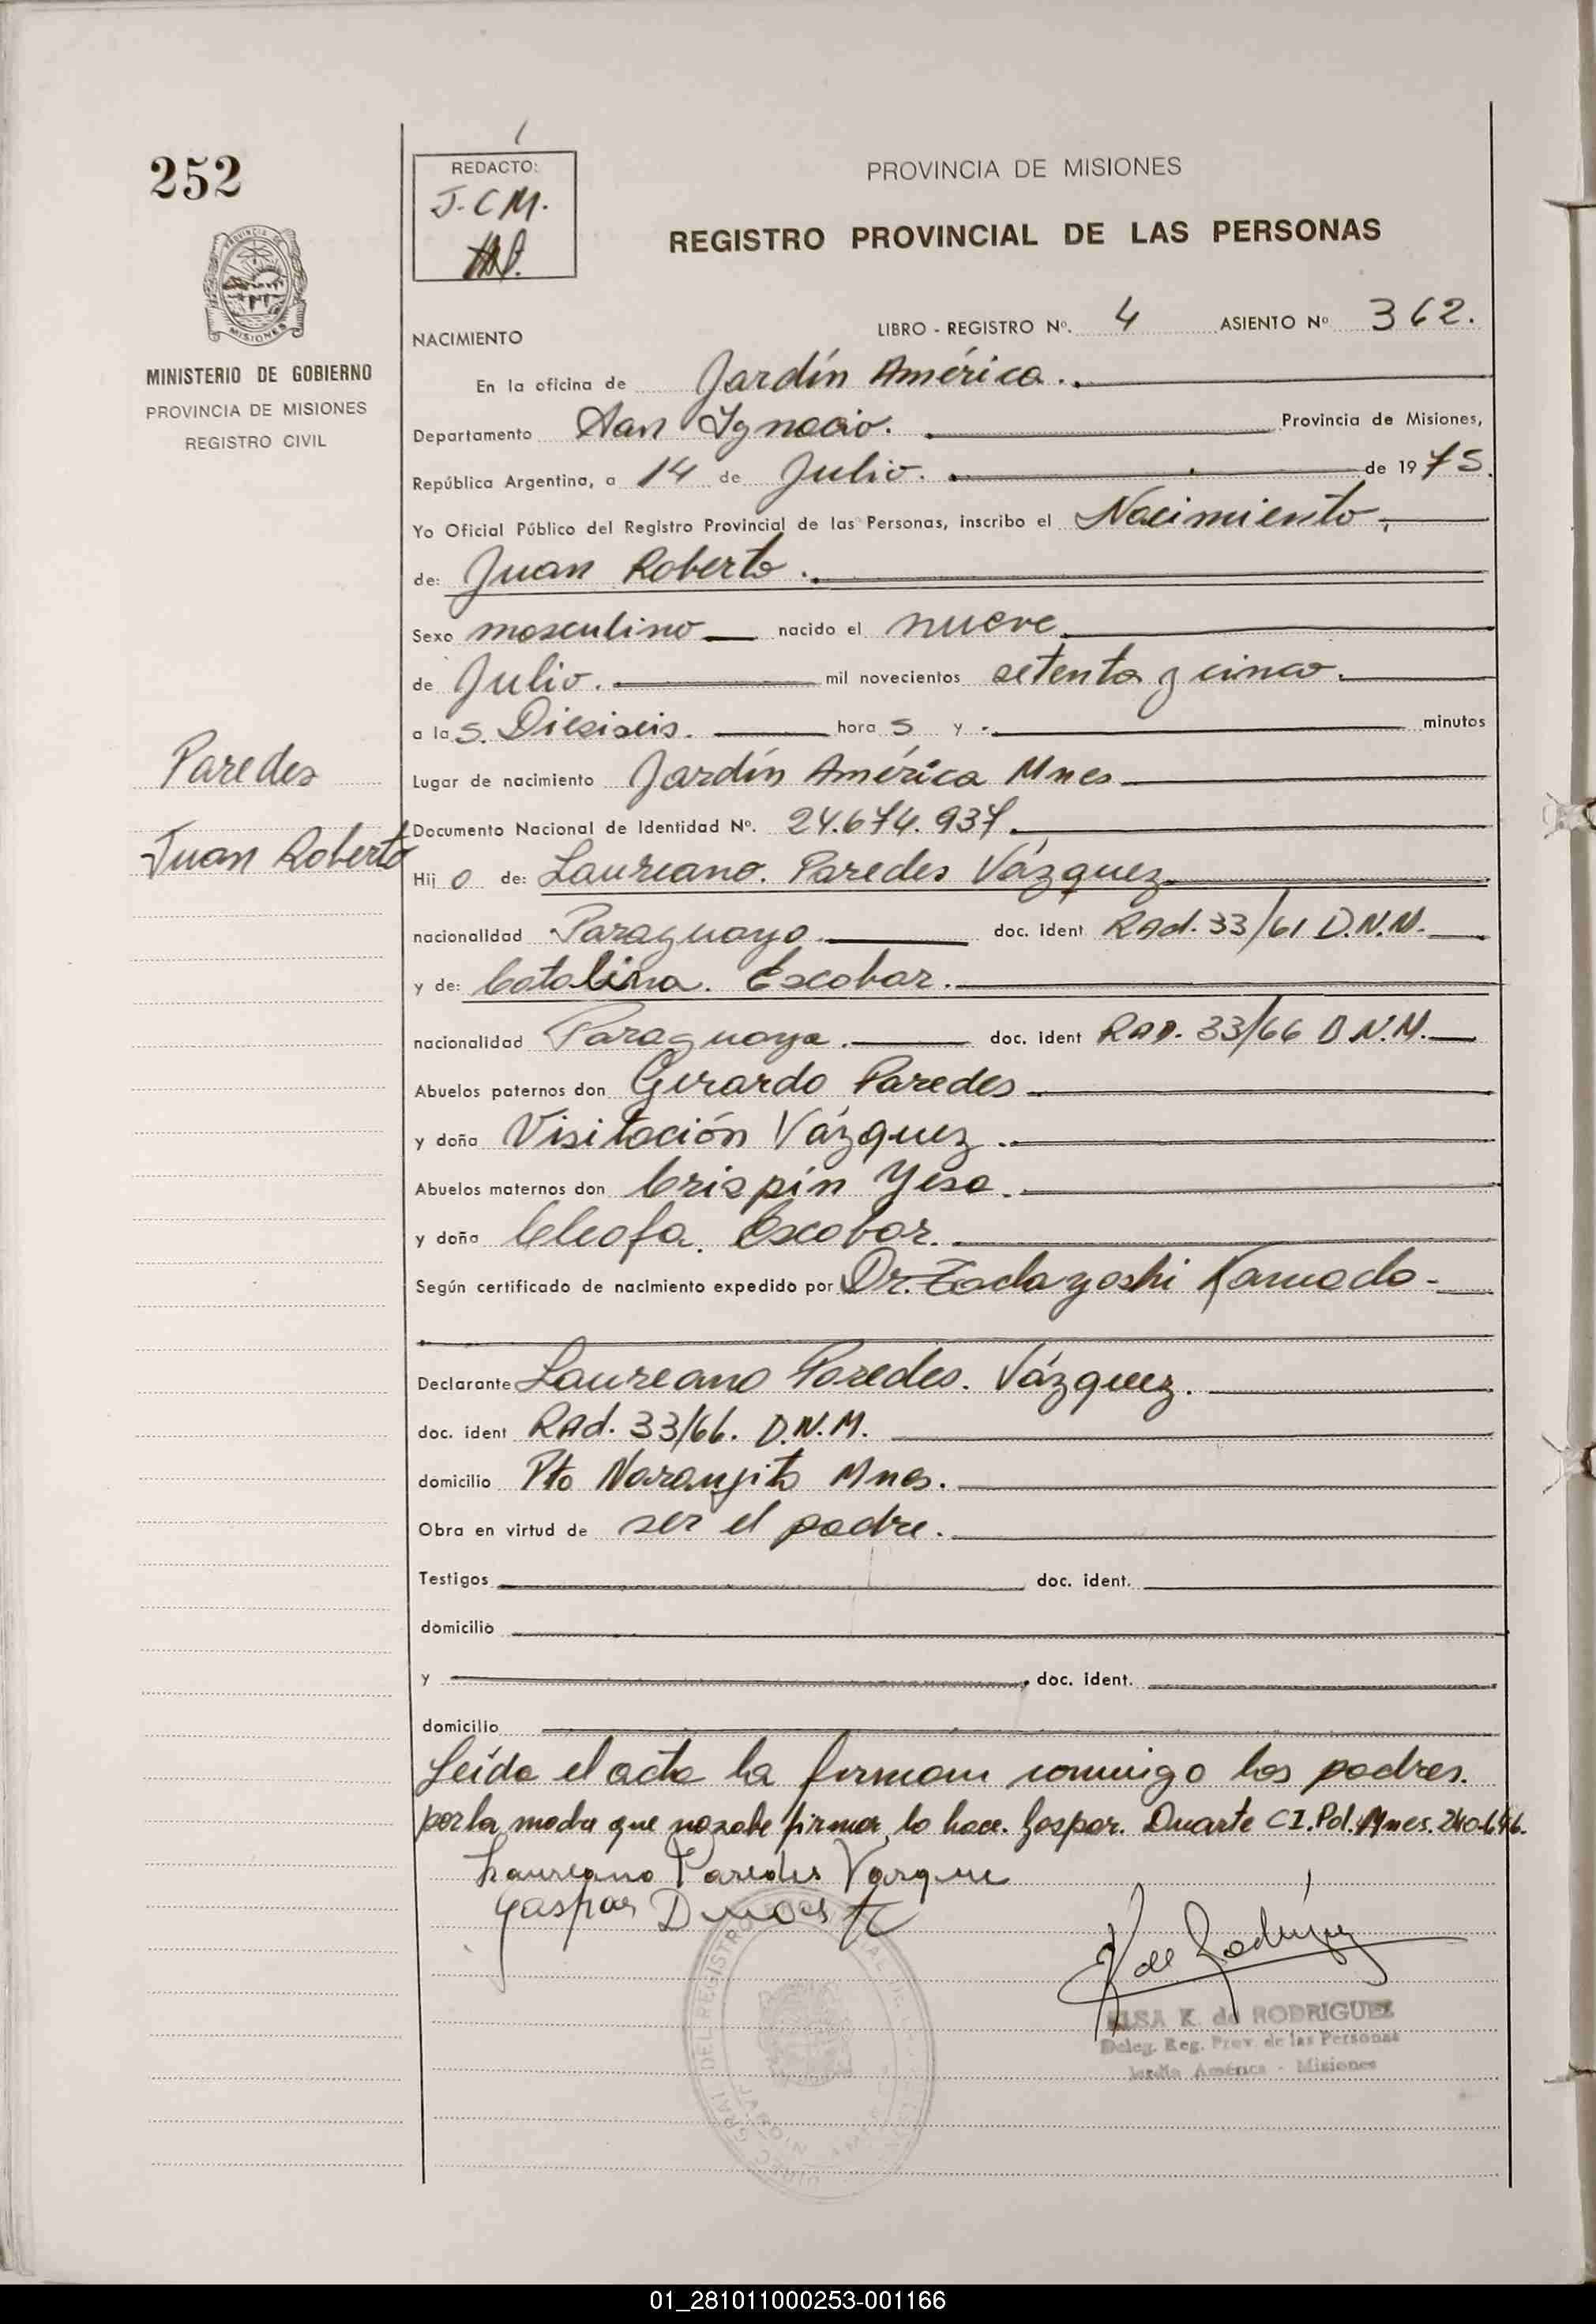 252
REDACTO:
J.C.M.
PROVINCIA DE MISIONES
REGISTRO PROVINCIAL DE LAS PERSONAS
MINISTERIO DE GOBIERNO
PROVINCIA DE MISIONES
REGISTRO CIVIL
NACIMIENTO
LIBRO - REGISTRO Nº. 4 ASIENTO Nº 362.
En la oficina de Jardín América.
Departamento San Ygnacio. Provincia de Misiones,
República Argentina, a 14 de Julio. de 1975.
Yo Oficial Público del Registro Provincial de las Personas, inscribo el Nacimiento,
de: Juan Roberto.
Sexo masculino nacido el nueve
de Julio. mil novecientos setenta y cinco.
a las. Diesiseis. horas y minutos
Paredes
Juan Roberto
Lugar de nacimiento Jardín América Mnes
Documento Nacional de Identidad Nº. 24.674.937.
Hijo de: Laureano. Paredes Vázquez
nacionalidad Paraguayo. doc. ident Rad. 33/61 D.N.M.
y de: Catalina. Escobar.
nacionalidad Paraguaya. doc. ident RAD. 33/66 D.N.M.
Abuelos paternos don Gerardo Paredes
y doña Visitación Vázquez.
Abuelos maternos don Crispín Yesa.
y doña Cleofa. Escobar.
Según certificado de nacimiento expedido por Dr. Tadayoshi Kamada-
Declarante Laureano Paredes. Vázquez.
doc. ident Rad. 33/66. D.N.M.
domicilio Pto Naranjito Mnes.
Obra en virtud de ser el padre.
Testigos doc. ident.
domicilio
y doc. ident.
domicilio
Leída el acta la firman conmigo los padres.
por la madre que no sabe firmar lo hace. Gaspar. Duarte C I. Pol. Mnes. 240.646.
Laureano Paredes Vazque
Gaspar Duarte
K de Rodríguez
ELSA K. de RODRIGUEZ
Deleg. Reg. Prov. de las Personas
Jardín América - Misiones
01_281011000253-001166